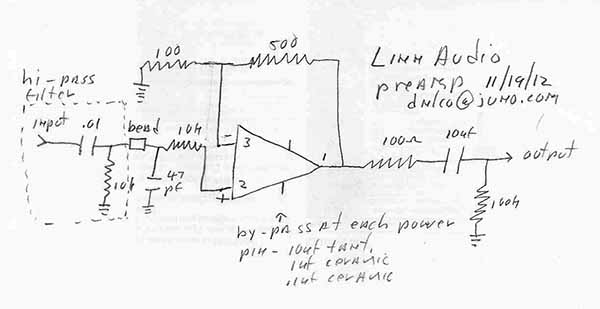 100
500
Linn Audio
preamp 11/19/12
dnlco@juno.com
hi-pass
filter
input
.01
bead
10k
10k
47
pf
-
3
+
2
1
100Ω
10uf
output
100k
by-pass at each power
pin - 10uf tant,
1uf ceramic
.1uf ceramic